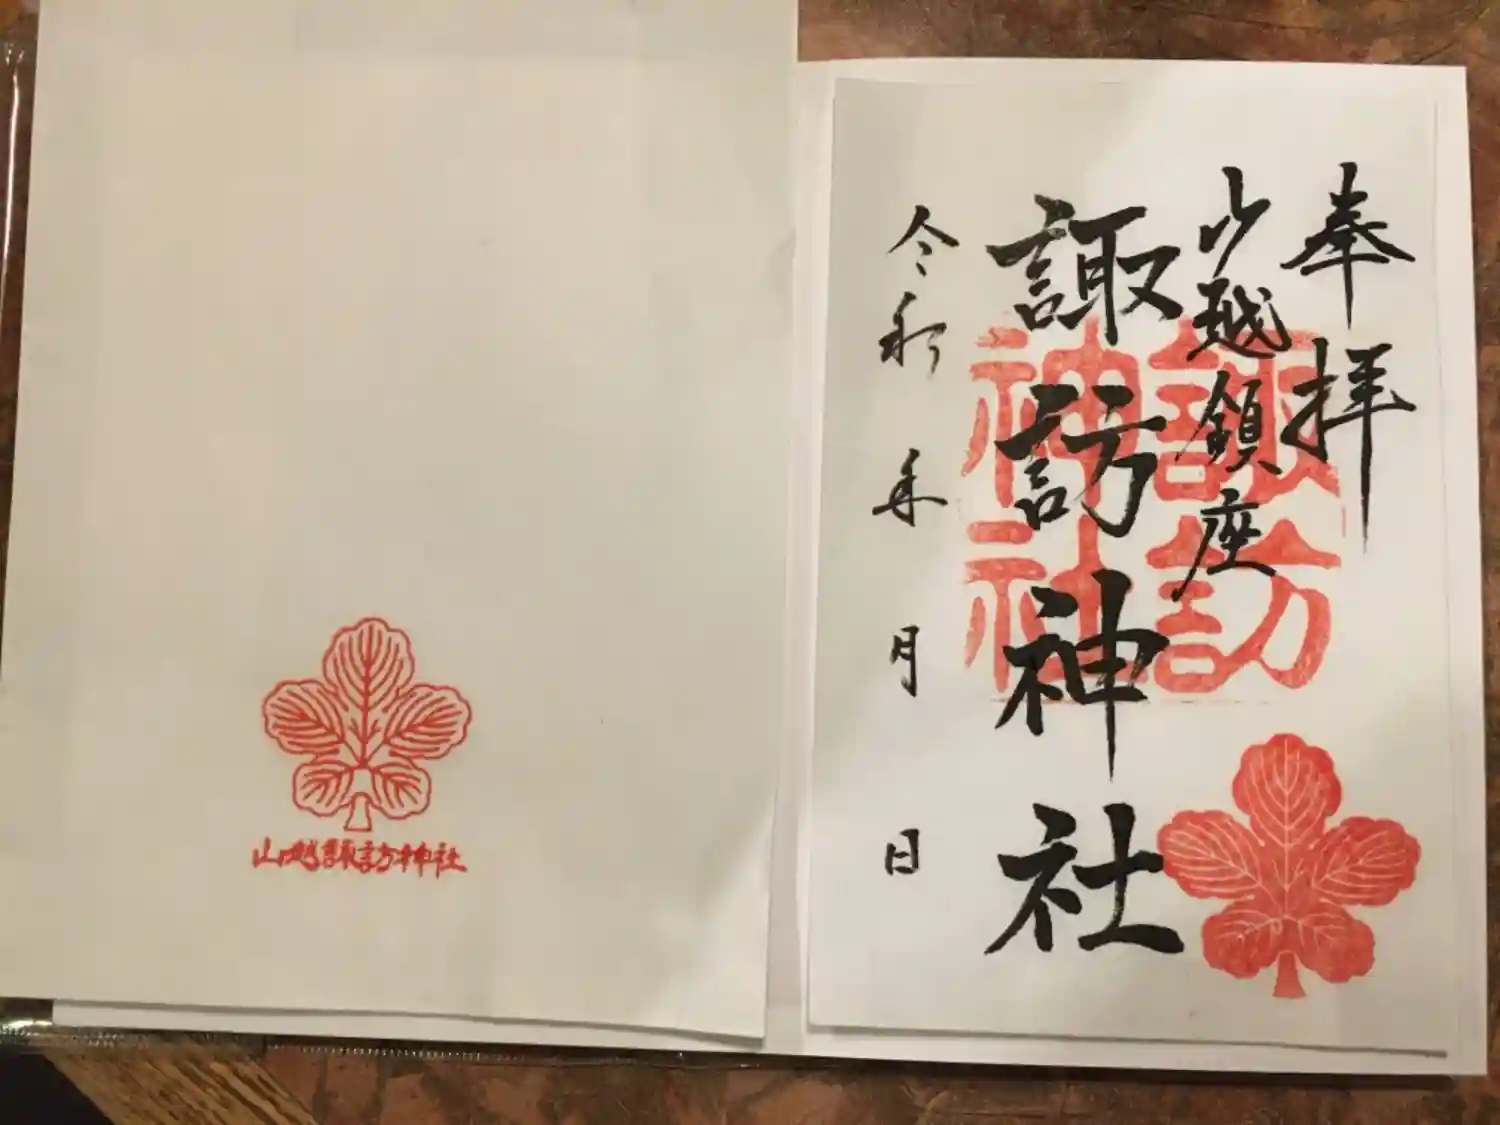 奉拝
山越鎮座
諏訪神社
令和 年 月 日
諏訪
神社
山越諏訪神社